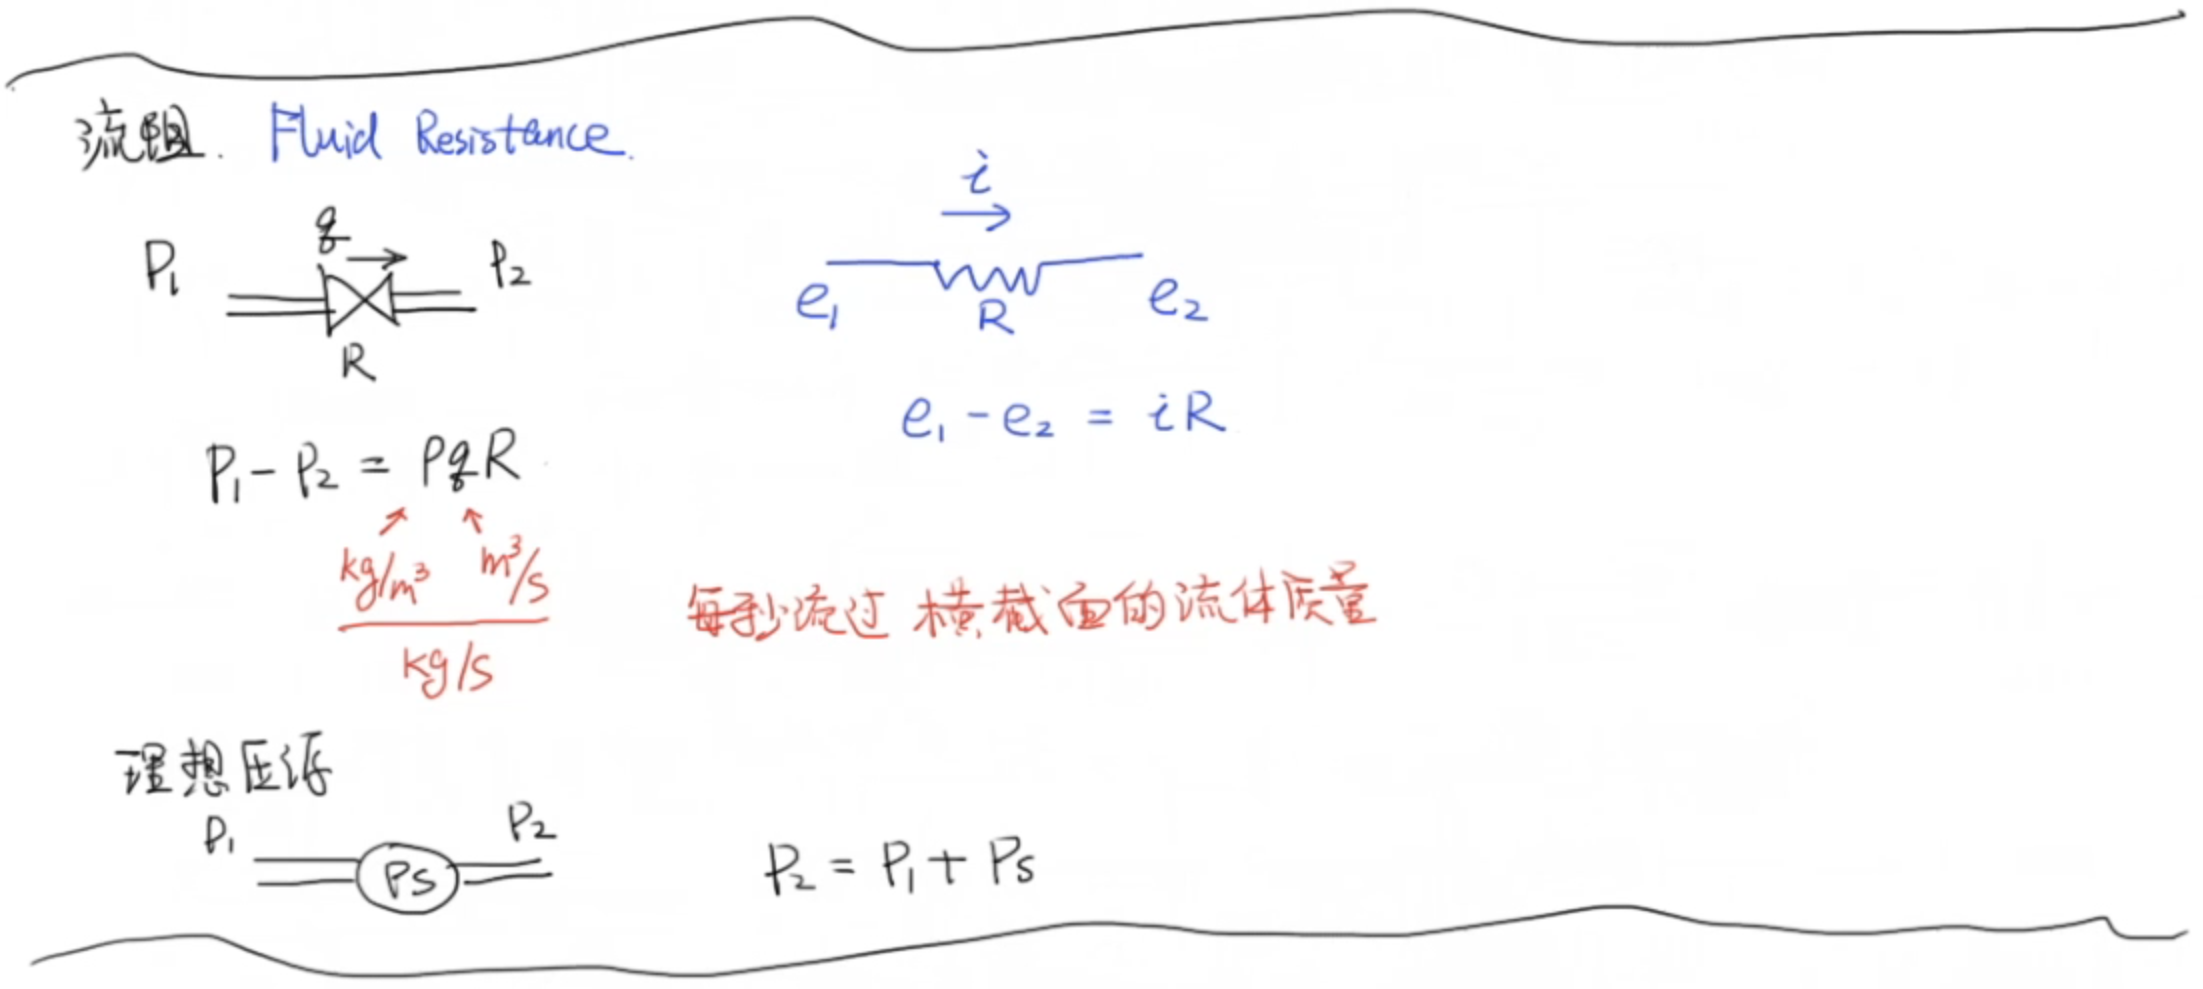 流阻. Fluid Resistance.
P₁ q → P₂
R
i →
e₁ R e₂
e₁ - e₂ = iR
P₁ - P₂ = ρqR
kg/m³ m³/s
kg/s
每秒流过横截面的流体质量
理想压源
P₁ Ps P₂
P₂ = P₁ + Ps